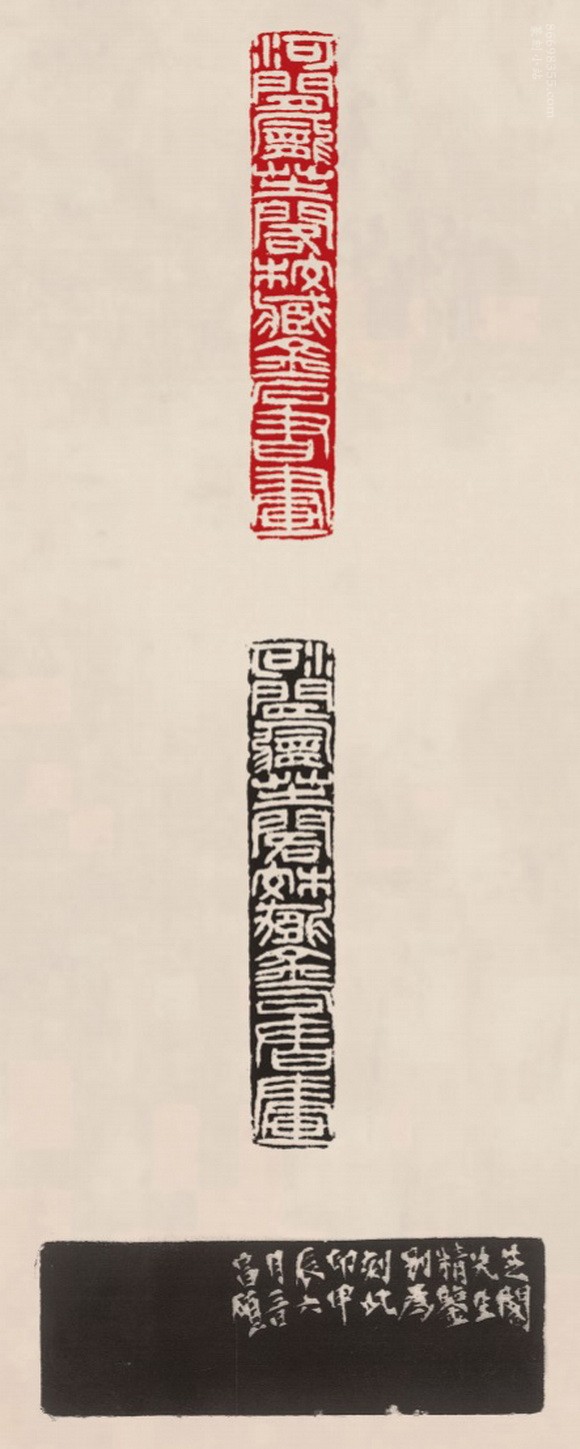 河間龐芝閣校藏金石書畫
河間龐芝閣校藏金石書畫
芝閣
先生
精鑒
別爲
刻此
印甲
辰六
月吳
昌碩